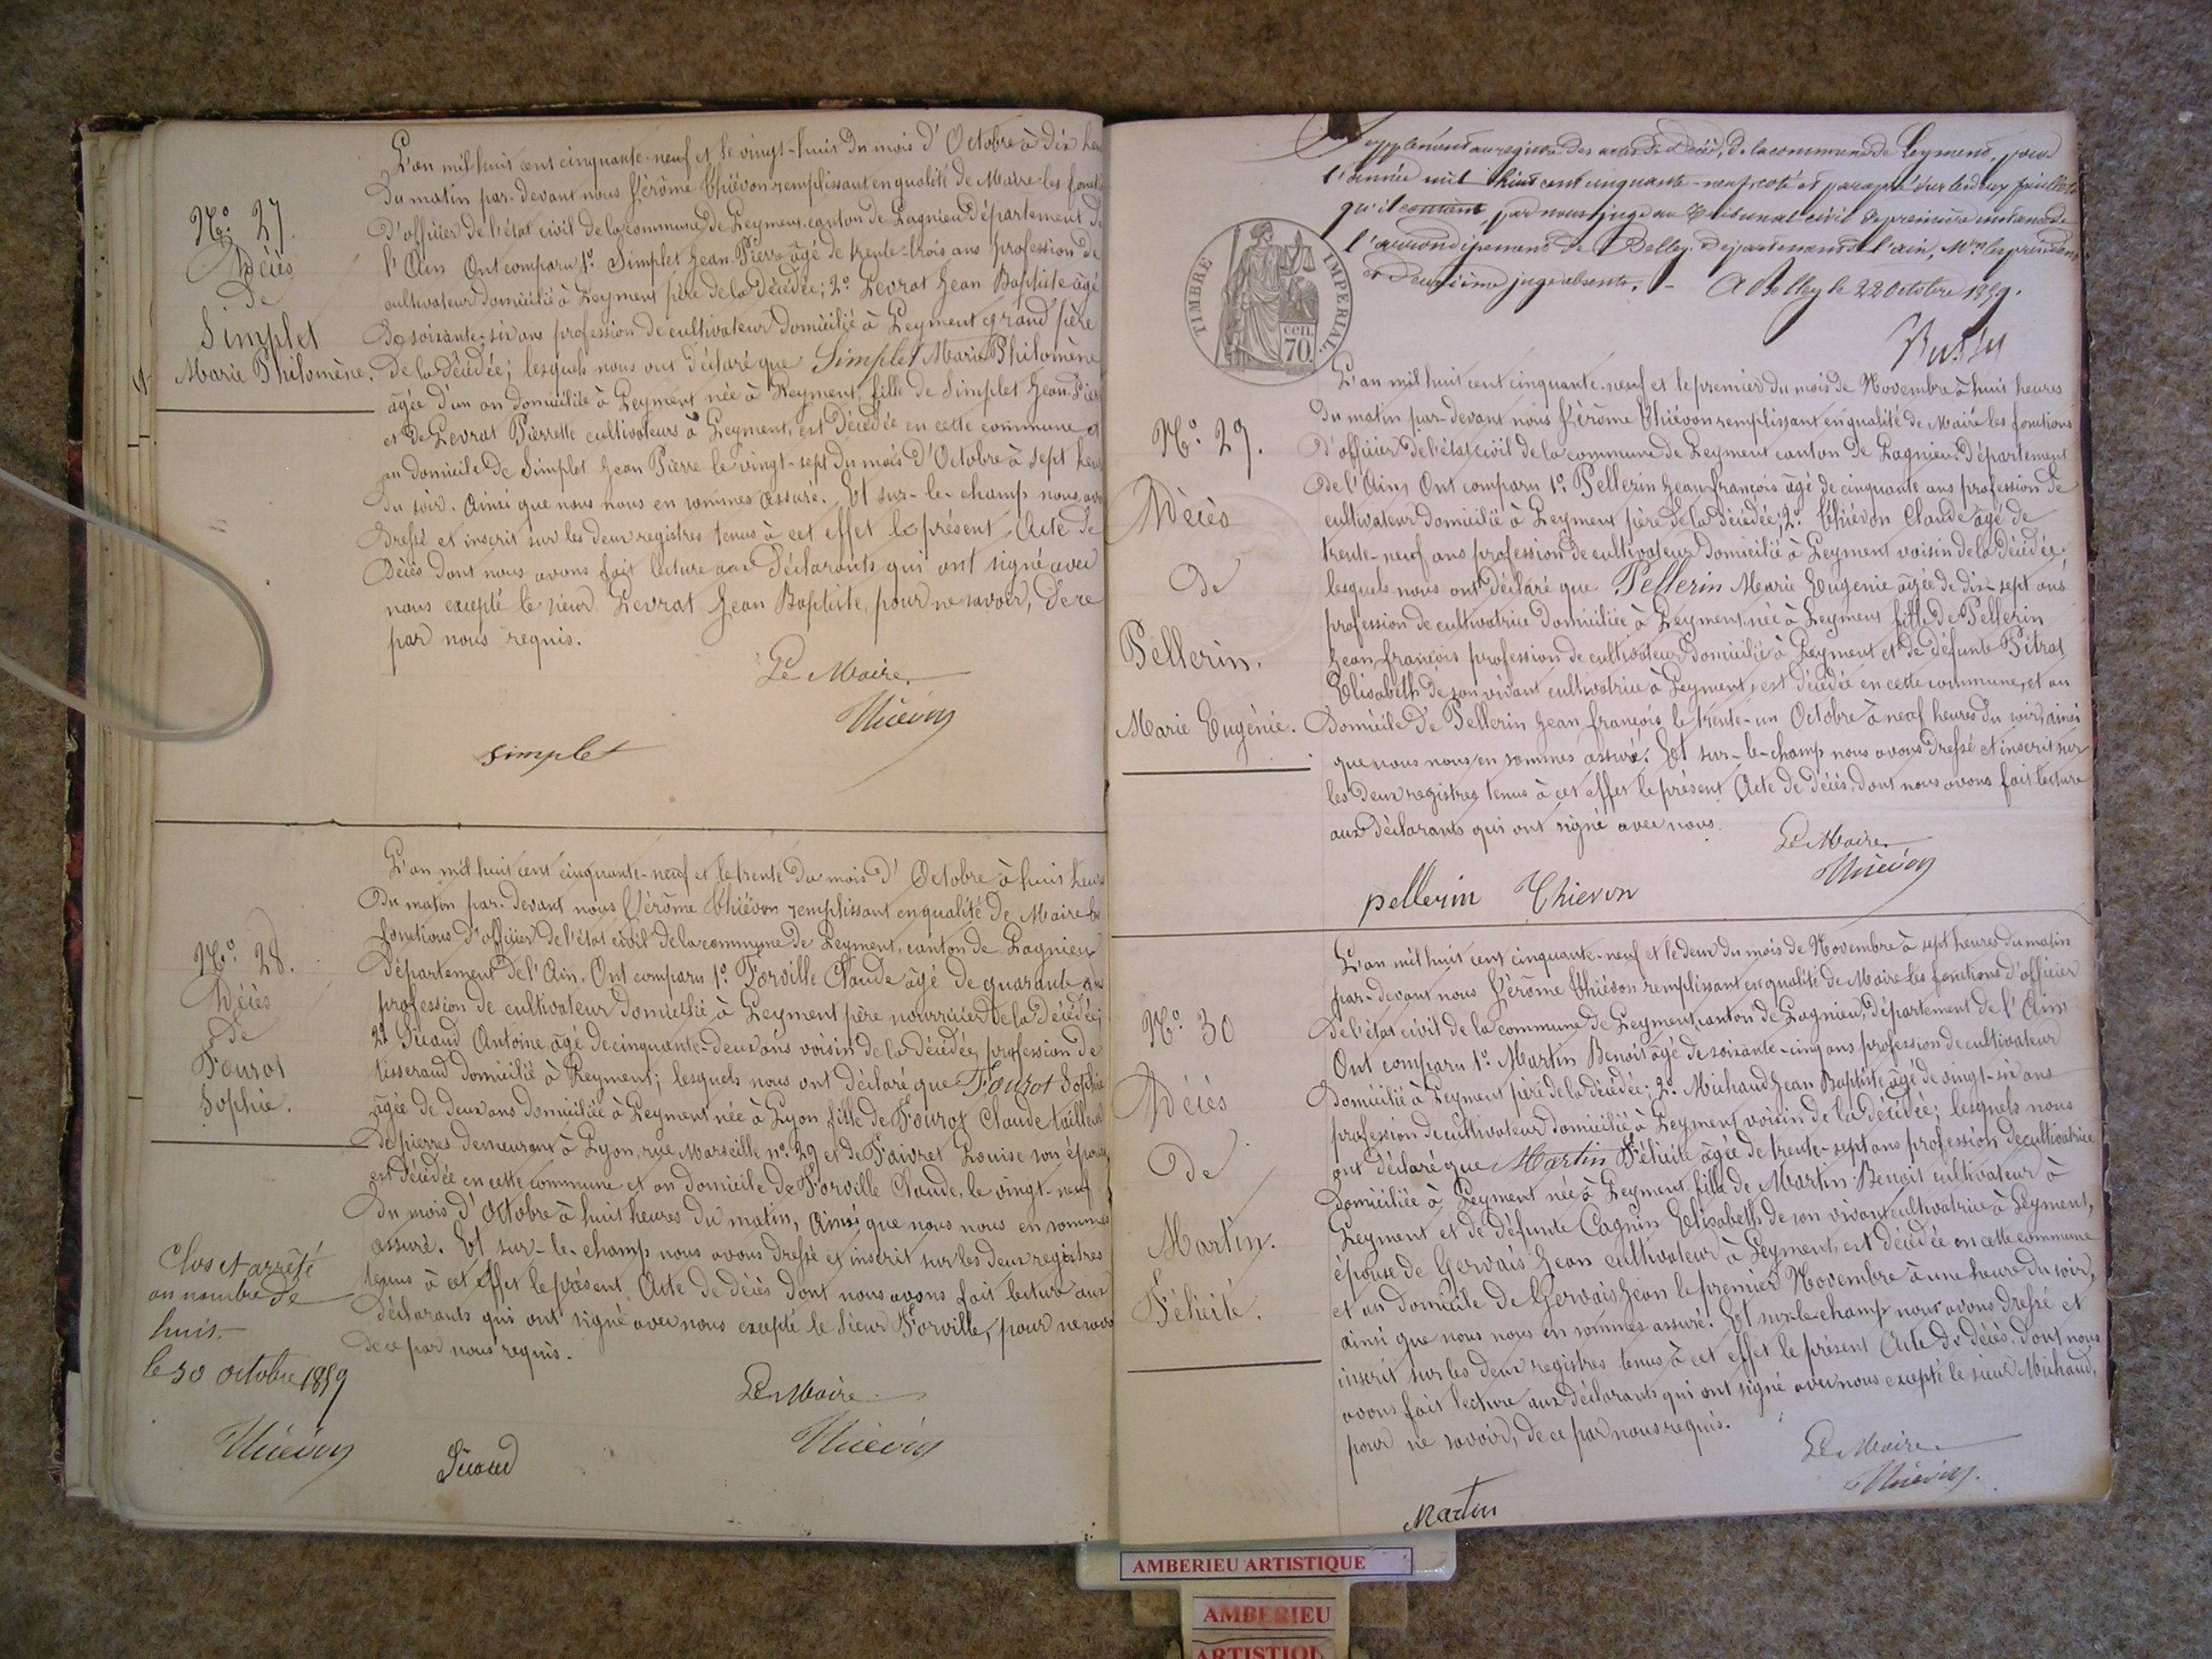 L'an mil huit cent cinquante-neuf et le vingt-huit du mois d'Octobre à dix heu
du matin par-devant nous Jérôme Thiévon remplissant en qualité de Maire les foncti
d'officier de l'état civil de la commune de Leyment canton de Lagnieu département de
l'Ain Ont comparu 1º. Simplet Jean Pierre âgé de trente-trois ans profession de
cultivateur domicilié à Leyment père de la décédée; 2º. Levrat Jean Baptiste âgé
de soixante-six ans profession de cultivateur domicilié à Leyment grand père
de la décédée; lesquels nous ont déclaré que Simplet Marie Philomène
âgée d'un an domiciliée à Leyment née à Leyment, fille de Simplet Jean-Pier
et de Levrat Pierrette cultivateurs à Leyment, est décédée en cette commune et
au domicile de Simplet Jean Pierre le vingt-sept du mois d'Octobre à sept heu
du soir. Ainsi que nous nous en sommes assuré. Et sur-le-champ nous avo
dressé et inscrit sur les deux registres tenus à cet effet le présent Acte de
décès dont nous avons fait lecture aux déclarants qui ont signé avec
nous excepté le sieur Levrat Jean Baptiste, pour ne savoir, de ce
par nous requis.
Nº. 27.
Décès
de
Simplet
Marie Philomène.
Le Maire,
Thiévon
Simplet
L'an mil huit cent cinquante-neuf et le trente du mois d'Octobre à huit heures
du matin par-devant nous Jérôme Thiévon remplissant en qualité de Maire les
fonctions d'officier de l'état civil de la commune de Leyment, canton de Lagnieu
département de l'Ain, Ont comparu 1º. Forville Claude âgé de quarante ans
profession de cultivateur domicilié à Leyment père nourricier de la décédée;
2º. Sicaud Antoine âgé de cinquante-deux ans voisin de la décédée, profession de
tisserand domicilié à Leyment; lesquels nous ont déclaré que Fourot Sophie
âgée de deux ans domiciliée à Leyment née à Lyon fille de Fourot Claude tailleur
de pierres demeurant à Lyon, rue Marseille nº. 29 et de Faivret Louise son épouse
est décédée en cette commune et au domicile de Forville Claude, le vingt-neuf
du mois d'Octobre à huit heures du matin, Ainsi que nous nous en sommes
assuré. Et sur-le-champ nous avons dressé et inscrit sur les deux registres
tenus à cet effet le présent Acte de décès dont nous avons fait lecture aux
déclarants qui ont signé avec nous excepté le sieur Forville, pour ne savoir
de ce par nous requis.
Nº. 28.
Décès
de
Fourot
Sophie.
Clos et arrêté
au nombre de
huit.
le 30 octobre 1859
Thiévon
Le Maire
Thiévon
Sicaud
Supplément au registre des actes de Décès, de la commune de Leyment, pour
l'année mil huit cent cinquante-neuf, coté et paraphé sur les deux feuillets
qu'il contient, par nous juge au Tribunal civil de première instance de
l'arrondissement de Belley. Département de l'ain, Mrs les président
et deuxième juge absents. - A Belley le 22 Octobre 1859.
TIMBRE IMPERIAL.
cen.
70.
L'an mil huit cent cinquante-neuf et le premier du mois de Novembre à huit heures
du matin par-devant nous Jérôme Thiévon remplissant en qualité de Maire les fonctions
d'officier de l'état civil de la commune de Leyment canton de Lagnieu département
de l'Ain, Ont comparu 1º. Pellerin Jean françois âgé de cinquante ans profession de
cultivateur domicilié à Leyment père de la décédée; 2º. Thiévon Claude âgé de
trente-neuf ans profession de cultivateur domicilié à Leyment voisin de la décédée.
lesquels nous ont déclaré que Pellerin Marie Eugénie âgée de dix-sept ans
profession de cultivatrice domiciliée à Leyment née à Leyment fille de Pellerin
Jean françois profession de cultivateur domicilié à Leyment et de défunte Pitrat
Elisabeth de son vivant cultivatrice à Leyment, est décédée en cette commune, et au
domicile de Pellerin Jean françois le trente-un Octobre à neuf heures du soir, ainsi
que nous nous en sommes assuré. Et sur-le-champ nous avons dressé et inscrit sur
les deux registres tenus à cet effet le présent Acte de décès, dont nous avons fait lecture
aux déclarants qui ont signé avec nous.
Nº. 29.
Décès
de
Pellerin.
Marie Eugénie.
Le Maire
Thiévon
pellerin Thievon
L'an mil huit cent cinquante-neuf et le deux du mois de Novembre à sept heures du matin
par-devant nous Jérôme Thiévon remplissant en qualité de Maire les fonctions d'officier
de l'état civil de la commune de Leyment, canton de Lagnieu, département de l'Ain
Ont comparu 1º. Martin Benoit âgé de soixante-cinq ans profession de cultivateur
domicilié à Leyment père de la décédée; 2º. Michaud Jean Baptiste âgé de vingt-six ans
profession de cultivateur domicilié à Leyment voisin de la décédée; lesquels nous
ont déclaré que Martin Félicité âgée de trente-sept ans profession de cultivatrice
domiciliée à Leyment née à Leyment fille de Martin Benoit cultivateur à
Leyment et de défunte Cagnin Elisabeth de son vivant cultivatrice à Leyment,
épouse de Gervais Jean cultivateur à Leyment, est décédée en cette commune
et au domicile de Gervais Jean le premier Novembre à une heure du soir,
ainsi que nous nous en sommes assuré. Et sur-le-champ nous avons dressé et
inscrit sur les deux registres tenus à cet effet le présent Acte de décès, dont nous
avons fait lecture aux déclarants qui ont signé avec nous excepté le sieur Michaud,
pour ne savoir, de ce par nous requis.
Nº. 30
Décès
de
Martin.
Félicité.
Le Maire
Thiévon.
Martin
AMBERIEU ARTISTIQUE
AMBERIEU